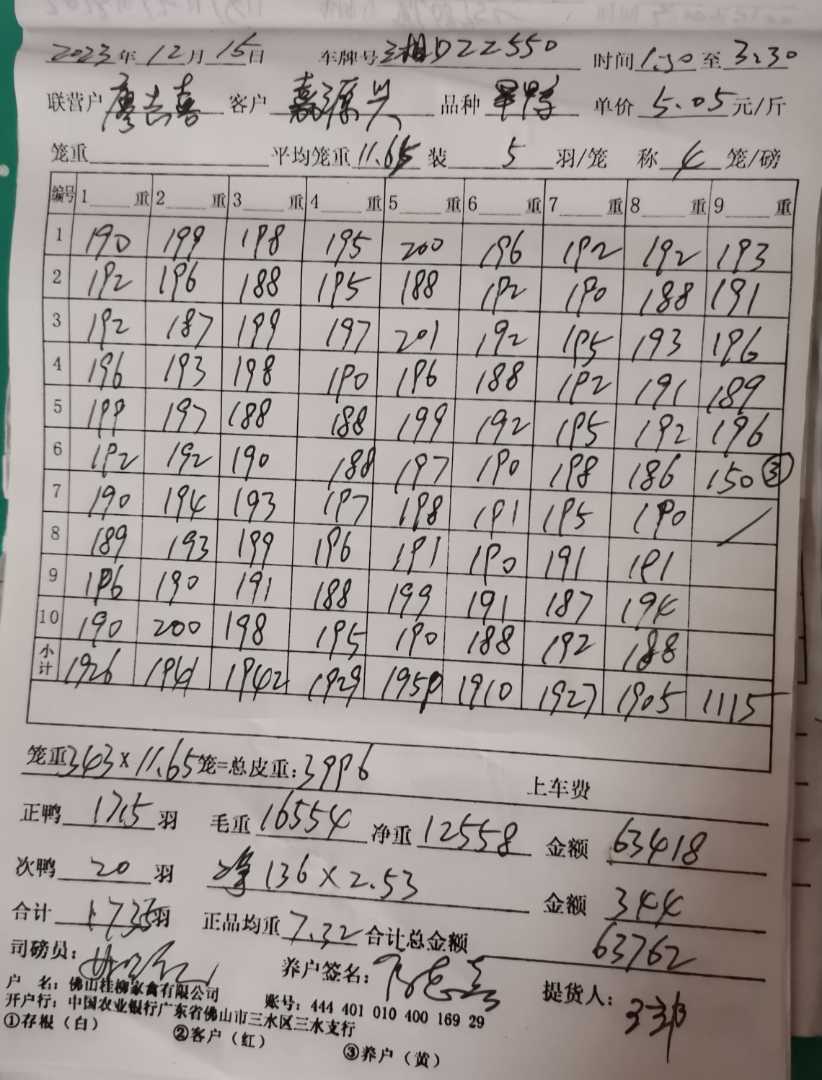 2023年12月15日 车牌号 D22550 时间1:30至3:30
联营户 廖志喜 客户 嘉源兴 品种 单价 5.05元/斤
笼重 平均笼重11.65装 5 羽/笼 称 4 笼/磅
编号 1 重 2 重 3 重 4 重 5 重 6 重 7 重 8 重 9 重
1 190 199 198 195 200 196 192 192 193
2 192 196 188 195 188 192 190 188 191
3 192 187 199 197 201 192 195 193 196
4 196 193 198 190 196 188 192 191 189
5 199 197 188 188 199 192 195 192 196
6 192 192 190 188 197 190 198 186 150 ③
7 190 194 193 197 198 191 195 190 /
8 189 193 199 196 191 190 191 191
9 196 190 191 188 199 191 187 194
10 190 200 198 195 190 188 192 188
小计 1926 1941 1942 1929 1959 1910 1927 1905 1115
笼重343×11.65笼=总皮重:3996 上车费
正鸭 1715 羽 毛重 16554 净重 12558 金额 63418
次鸭 20 羽 净136×2.53 金额 344
合计 1735羽 正品均重7.32 合计总金额 63762
司磅员: 养户签名: 提货人:
户 名:佛山桂柳家禽有限公司 账号:444 401 010 400 169 29
开户行:中国农业银行广东省佛山市三水区三水支行
①存根(白) ②客户(红) ③养户(黄)